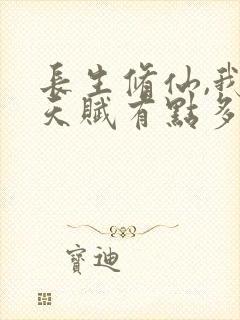 長生脩仙,我
天賦有點多
寶迪